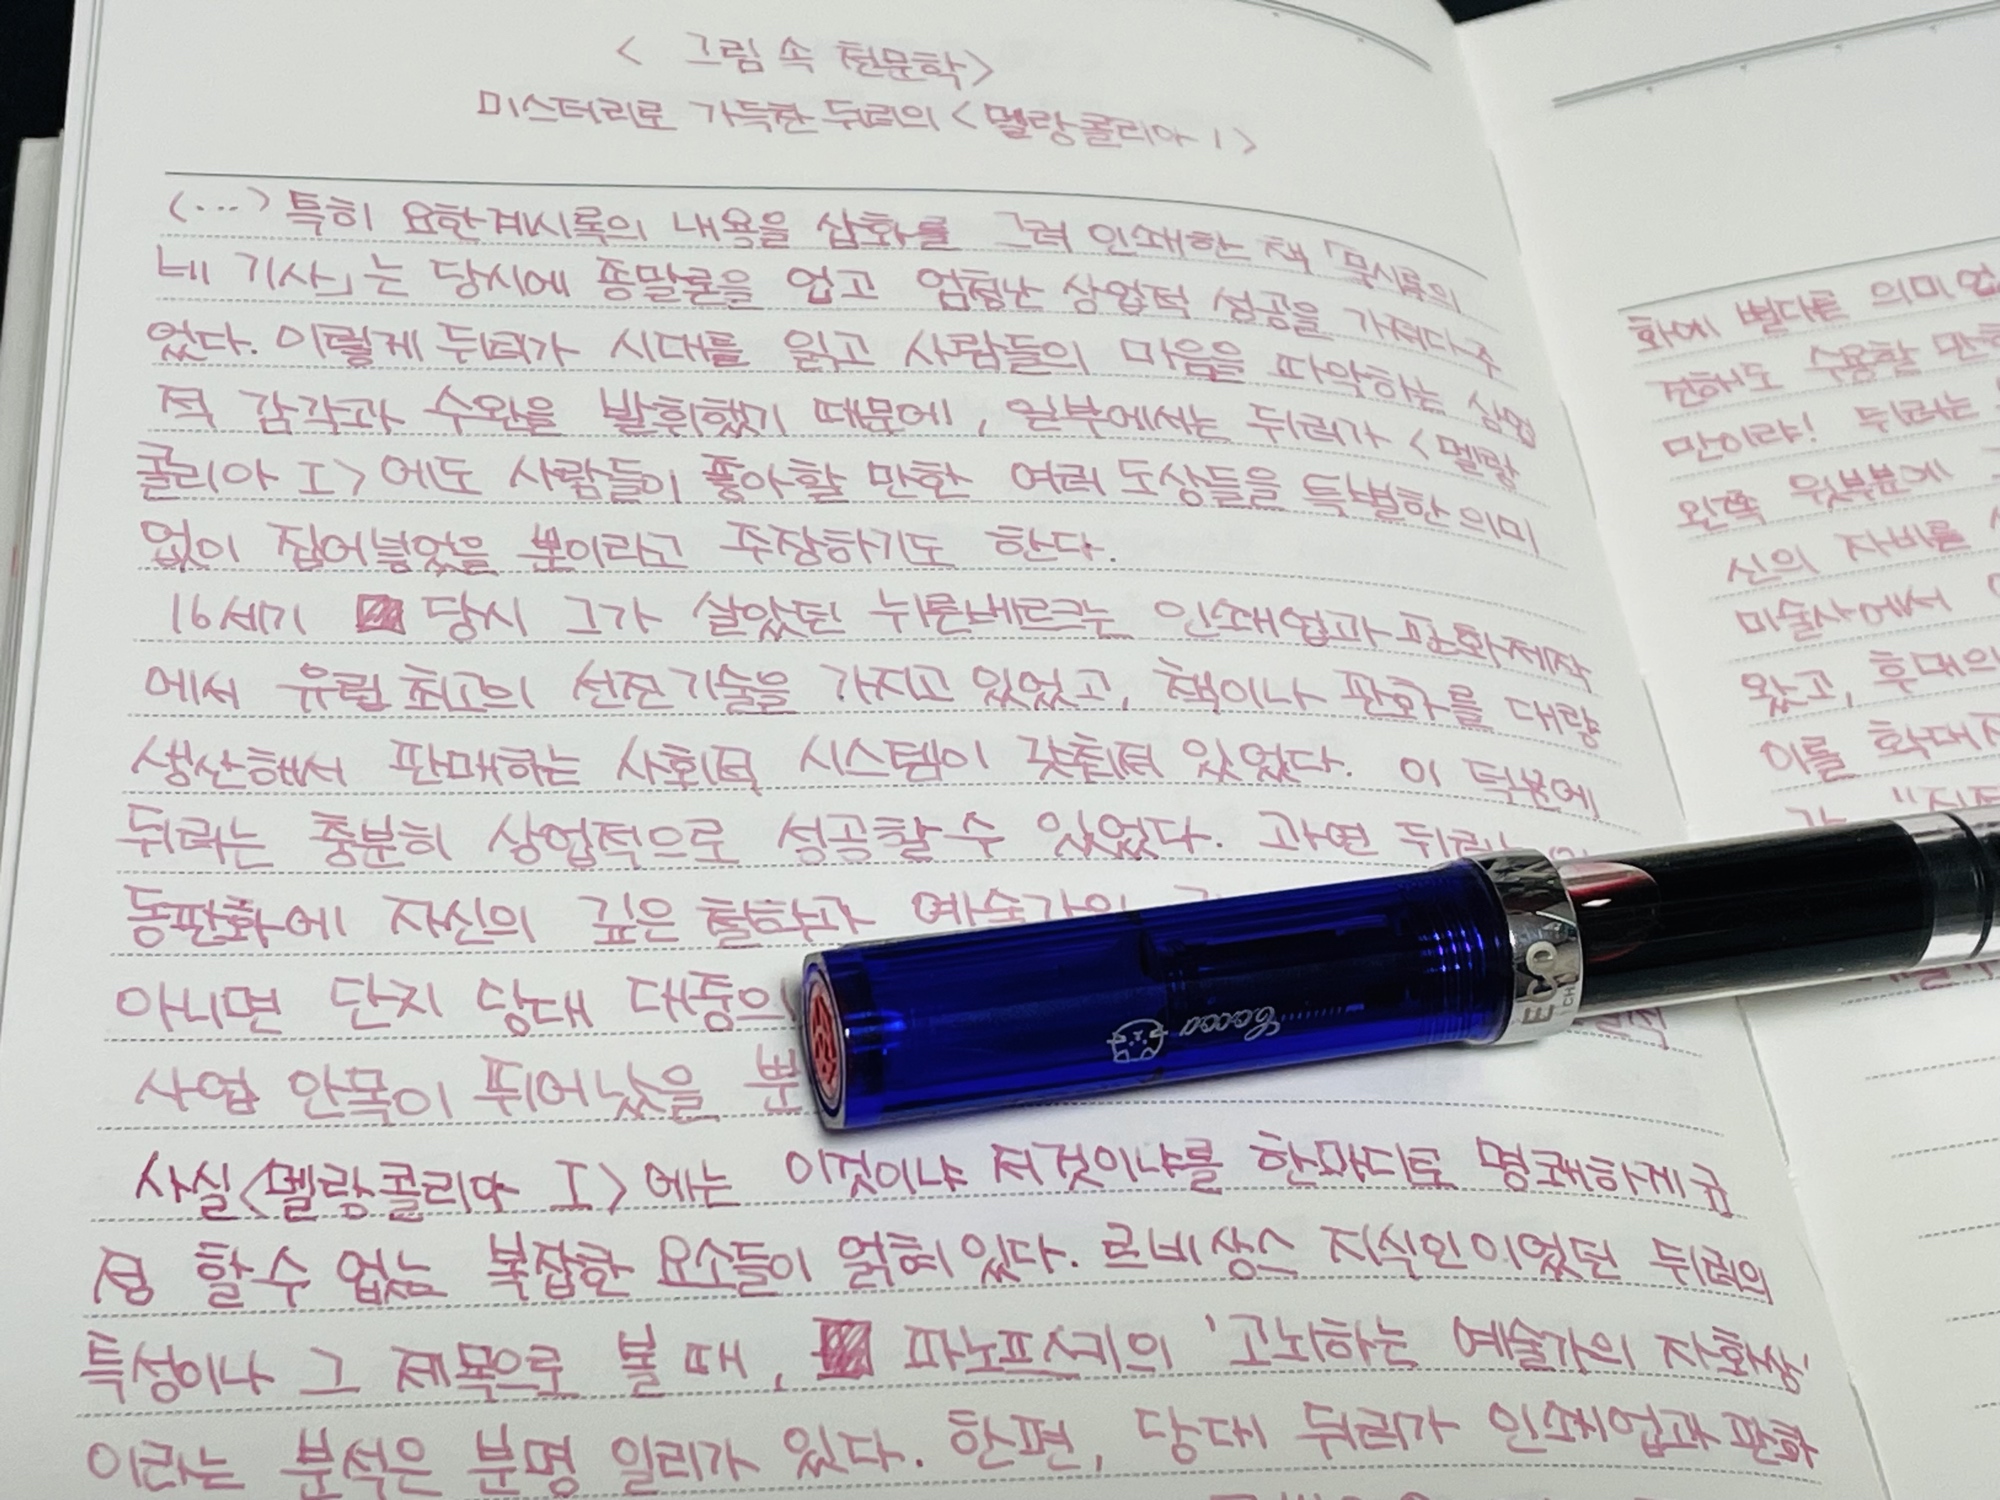 < 그림 속 천문학>
미스터리로 가득한 뒤러의 <멜랑콜리아 I>
<...> 특히 요한계시록의 내용을 삽화를 그려 인쇄한 책 「묵시록의
네 기사」는 당시에 종말론을 업고 엄청난 상업적 성공을 가져다주
었다. 이렇게 뒤러가 시대를 읽고 사람들의 마음을 따악하는 상업
적 감각과 수완을 발휘했기 때문에, 일부에서는 뒤러가 <멜랑
콜리아 I>에도 사람들이 좋아할 만한 여러 도상들을 특별한 의미
없이 집어넣었을 뿐이라고 주장하기도 한다.
16세기 당시 그가 살았던 뉘른베르크는 인쇄업과 판화제작
에서 유럽 최고의 선진기술을 가지고 있었고, 책이나 판화를 대량
생산해서 판매하는 사회적 시스템이 갖춰져 있었다. 이 덕분에
뒤러는 충분히 상업적으로 성공할 수 있었다. 과연 뒤러는
동판화에 자신의 깊은 철학과 예술가의
아니면 단지 당대 대중의
사업 안목이 뛰어났을 뿐
사실 <멜랑콜리아 I>에는 이것이냐 저것이냐를 한마디로 명쾌하게 규
정 할 수 없는 복잡한 요소들이 얽혀 있다. 르네상스 지식인이었던 뒤러의
특성이나 그 제목으로 볼 때, 파노프스키의 '고뇌하는 예술가의 자화상'
이라는 분석은 분명 일리가 있다. 한편, 당대 뒤러가 인쇄업과 판화
화에 별다른 의미 없
전해도 수용할 만한
만이랴! 뒤러는
왼쪽 윗부분에
신의 자비를
미술사에서
왔고, 후대의
이를 확대
ECO
Cocoa